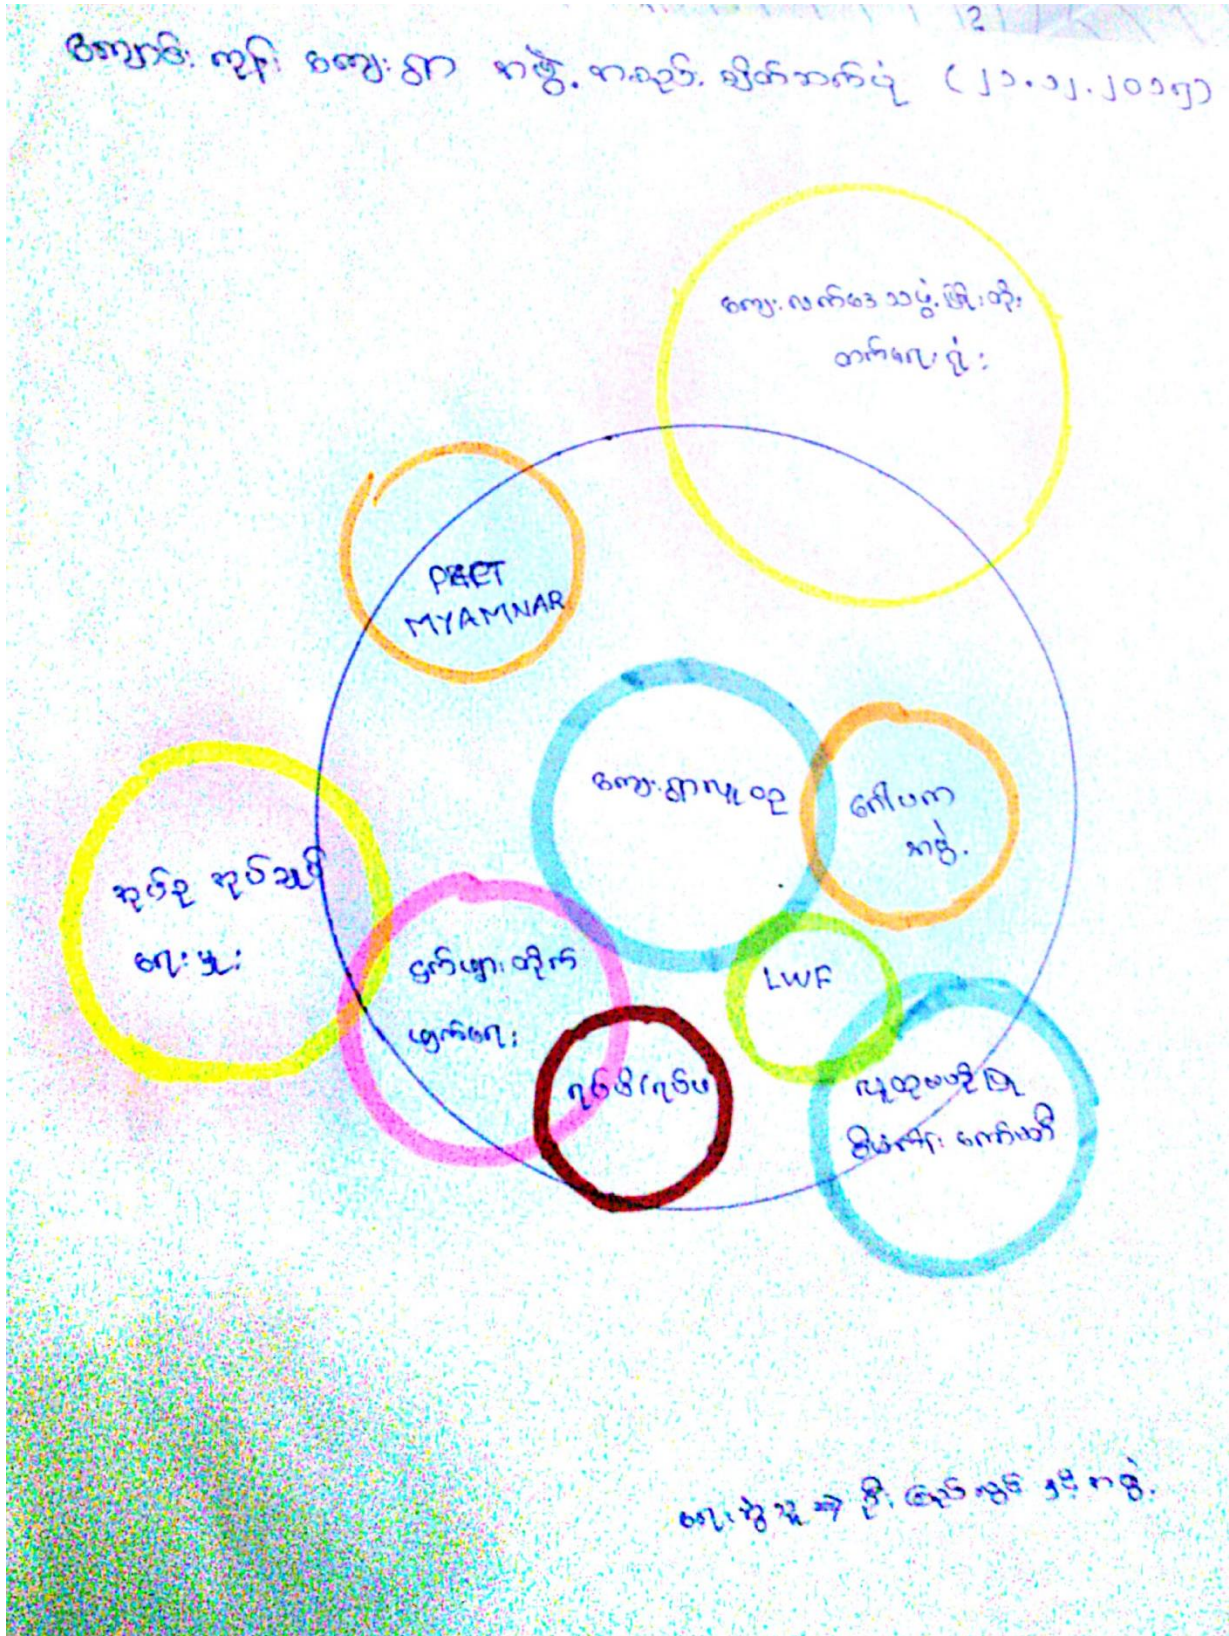 ကျောင်းကုန်း ကျေးရွာ အဖွဲ့အစည်း ချိတ်ဆက်ပုံ (၂၁.၁၂.၂၀၁၅)
ကျေးလက်ဒေသဖွံ့ဖြိုးတိုး
တက်ရေးဦး
PACT
MYAMNAR
ကျေးရွာလူထု
ဂေါပက
အဖွဲ့
အုပ်စု အုပ်ချုပ်
ရေးမှူး
ငှက်ဖျားတိုက်
ဖျက်ရေး
LWF
ရပ်မိရပ်ဖ
လူထုဗဟိုပြု
စီမံကိန်း ကော်မတီ
ရေးဆွဲသူ ⇒ ဦး
နှင့် အဖွဲ့